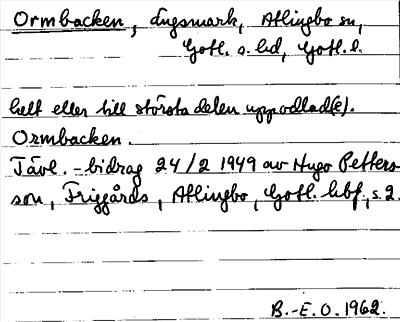 Ormbacken, Lugsmark, Atlingbo sn,
Gotl. s. hd, Gotl. l.
helt eller till största delen uppodlad(e).
Ormbacken.
Tävl.-bidrag 24/2 1949 av Hugo Petters-
son, Friggårds, Atlingbo, Gotl. hbf, s. 2.
B.-E. O. 1962.